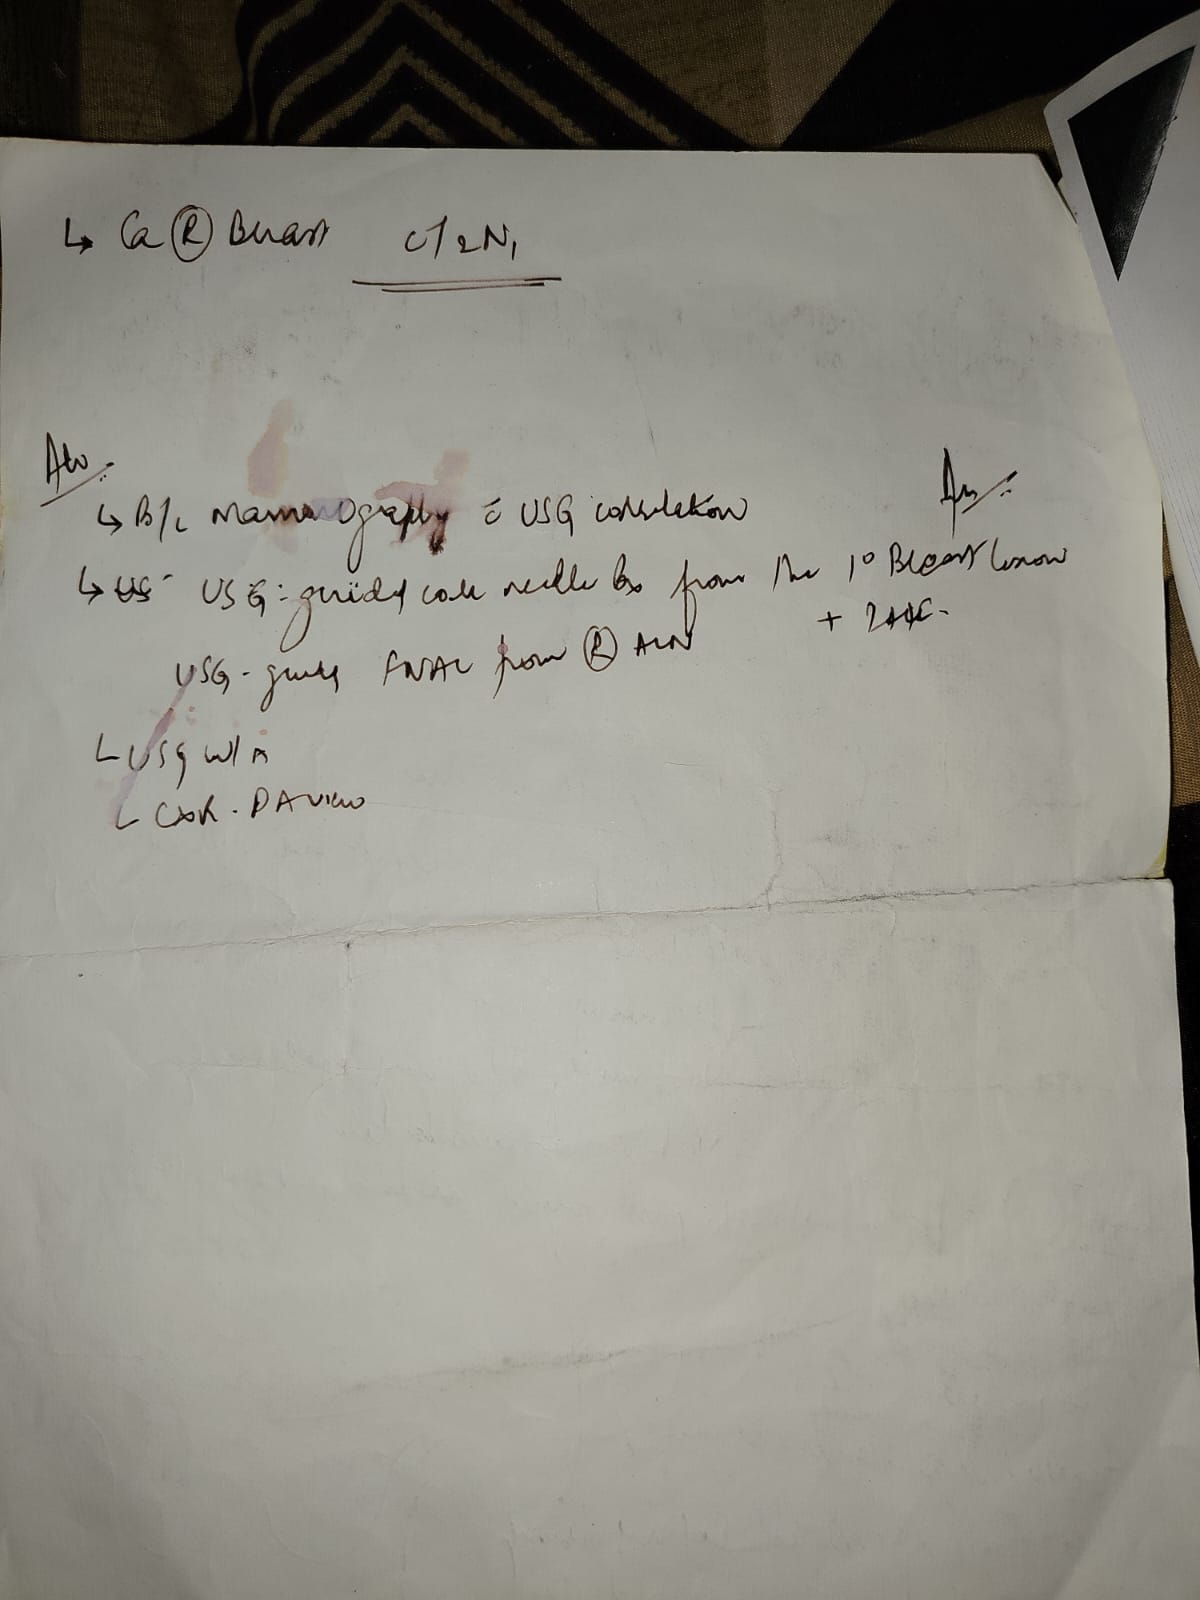 ↳ Ca Ⓡ Breast cT2N1
Adv:-
↳ B/L Mammography c̄ USG correlation
↳ USG-guided core needle Bx from the 1° Breast lesion
+ IHC.
USG-guided FNAC from Ⓡ ALN
↳ USG W/A
↳ CXR - PA view